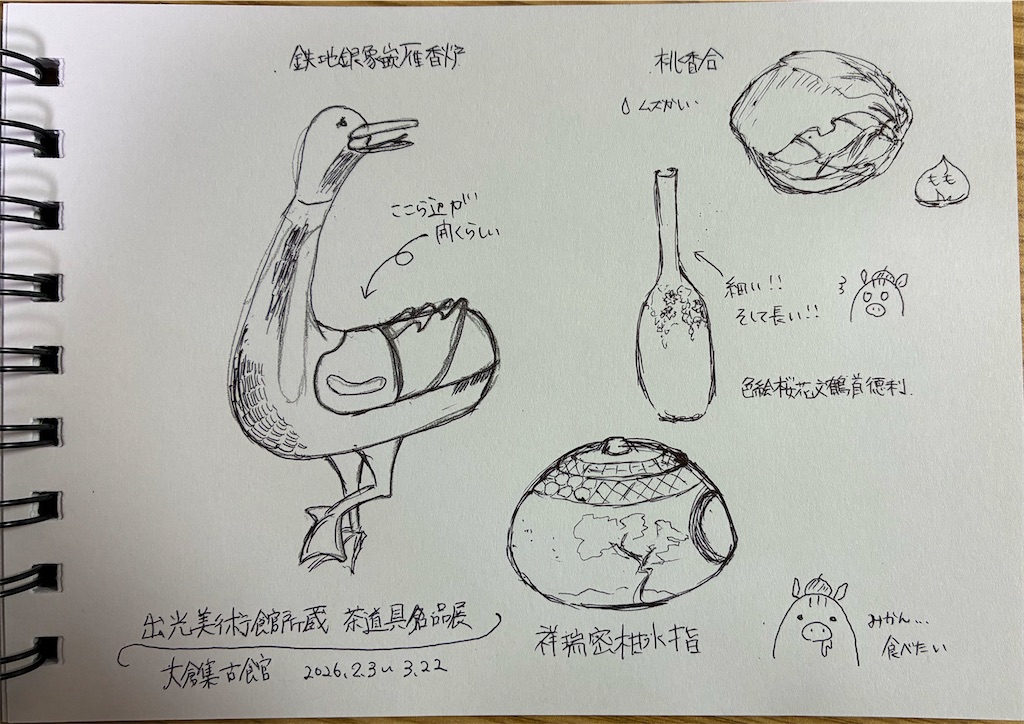 鉄地銀象嵌雁香炉
ここら辺が
開くらしい
桃香合
ムズかい
もも
細い!!
そして長い!!
色絵桜花文鶴首徳利
祥瑞蜜柑水指
みかん...
食べたい
出光美術館所蔵 茶道具名品展
大倉集古館 2026.2.3〜3.22